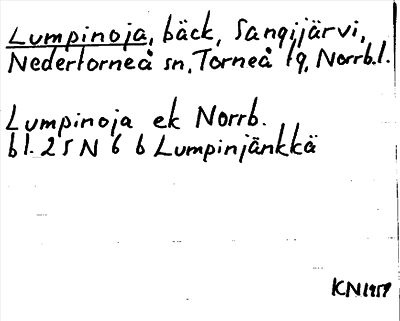 Lumpinoja, bäck, Sangijärvi,
Nedertorneå sn, Torneå lg, Norrb.l.
Lumpinoja ek Norrb.
bl. 25 N 6 b Lumpinjänkkä
KN 1959